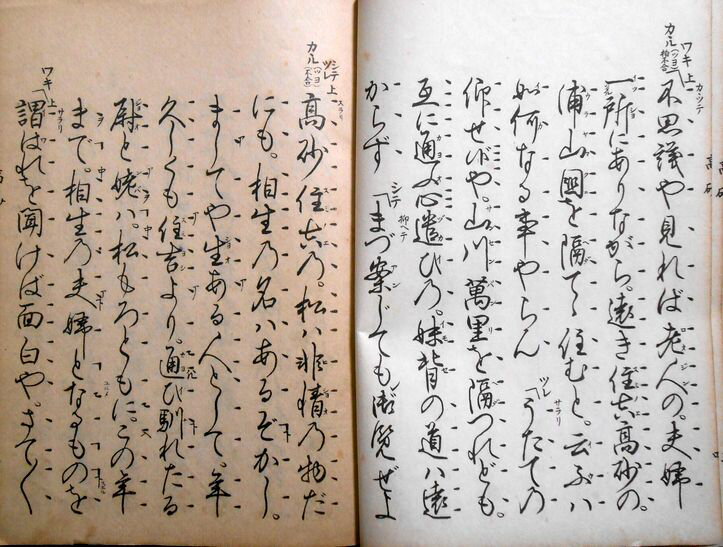 ワキ 上 カヽル 不思議や見れば老人の。夫婦
一所にありながら。遠き住吉高砂の。
浦山國を隔てゝ住むと。云ふハ
如何なる事やらん ツレ サラリ 「うたての
仰せ候や。山川萬里を隔つれども。
互に通ふ心遣ひの。妹背の道ハ遠
からず シテ 「まづ案じても御覧ぜよ
シテ ツレ 上 カヽル サラリ 高砂住吉乃。松ハ非情乃物だ
にも。相生乃名ハあるぞかし。
ましてや生ある人として。年
久しくも住吉より。通ひ馴れたる
尉と姥ハ。松もろともに。この年
まで。相生乃夫婦となるものを
ワキ 上 サラリ 「謂はれを聞けば面白や。さて〱